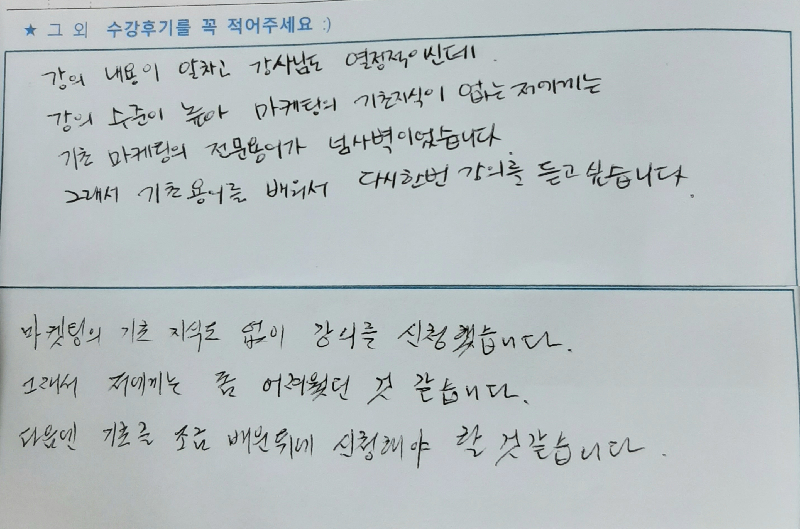 ★ 그 외 수강후기를 꼭 적어주세요 :)
강의 내용이 알차고 강사님도 열정적이신데
강의 수준이 높아 마케팅의 기초지식이 없는 저에게는
기초 마케팅의 전문용어가 넘사벽이었습니다
그래서 기초용어를 배워서 다시한번 강의를 듣고 싶습니다.
마켓팅의 기초 지식도 없이 강의를 신청했습니다.
그래서 저에게는 좀 어려웠던 것 같습니다.
다음엔 기초를 조금 배운뒤에 신청해야 할 것같습니다.